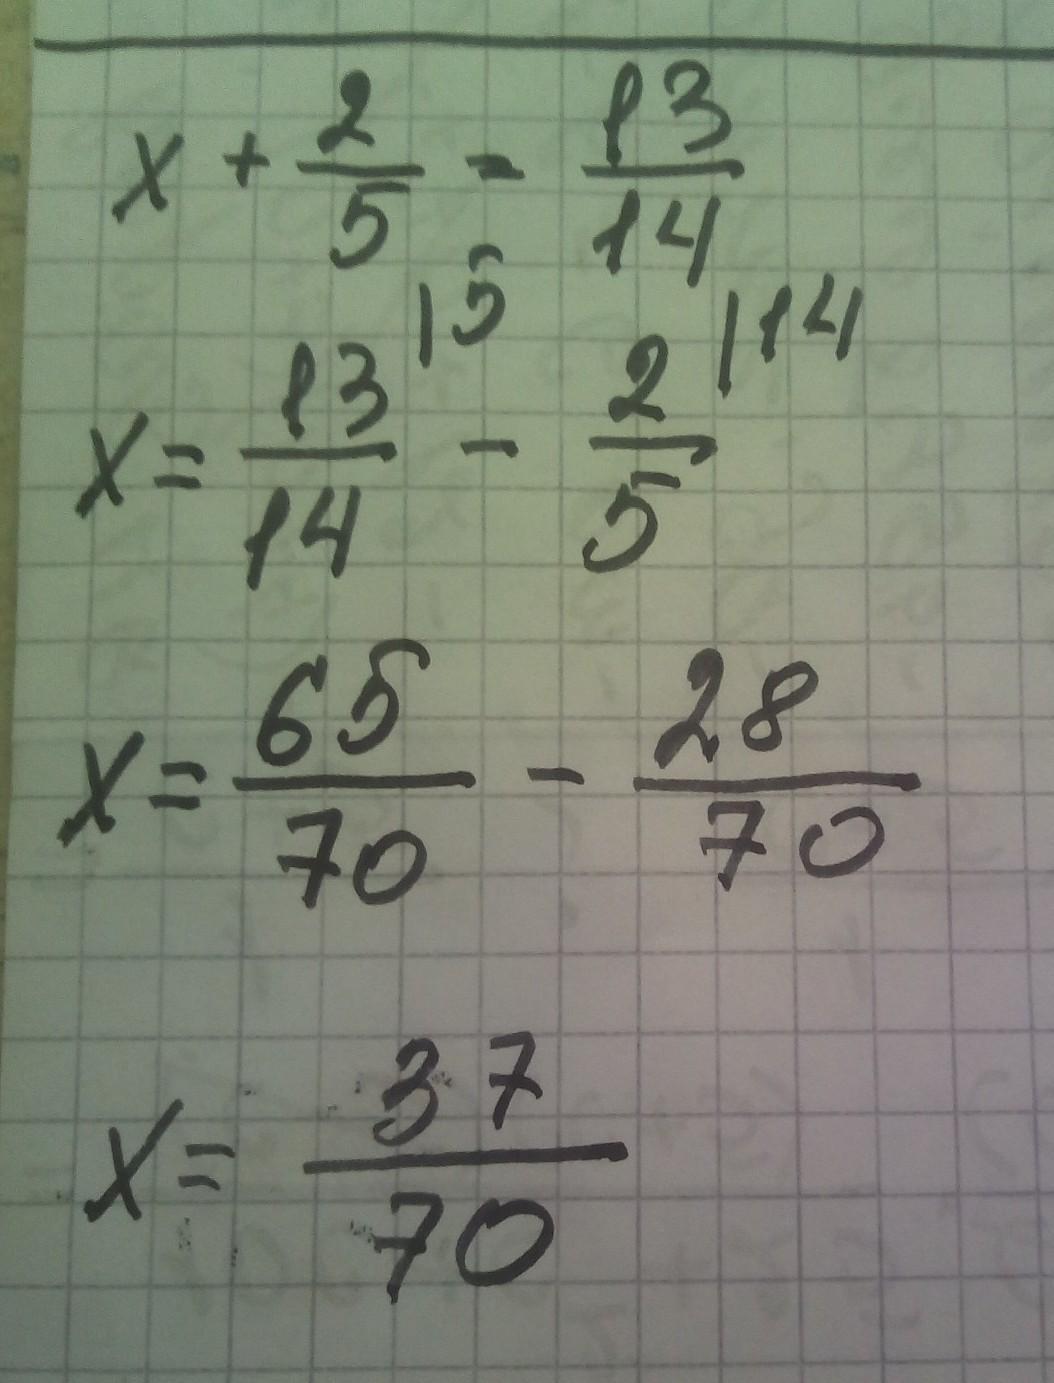 x + 2/5 = 13/14
x = 13/14 |5 - 2/5 |14
x = 65/70 - 28/70
x = 37/70